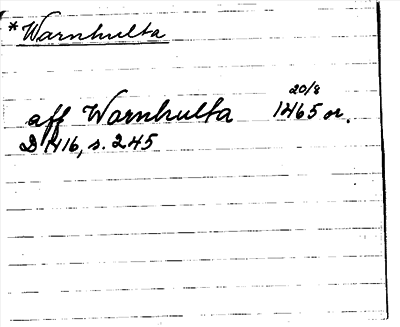 * Warnhulta
20/8
aff Warnhulta 1465 or.
D 1416, s. 245